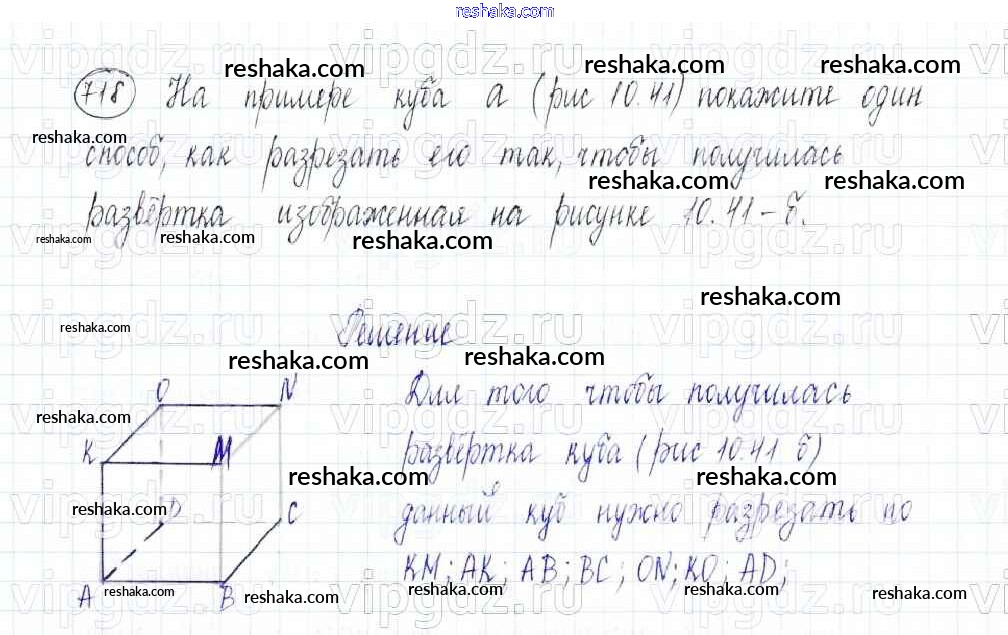 reshaka.com
718 На примере куба а (рис 10.41) покажите один
способ, как разрезать его так, чтобы получилась
развёртка изображенная на рисунке 10.41-б.
Решение
Для того чтобы получилась
развёртка куба (рис 10.41 б)
данный куб нужно разрезать по
KM; AK; AB; BC; ON; KO; AD;
O N
K M
D C
A B
vipgdz.ru vipgdz.ru vipgdz.ru vipgdz.ru
reshaka.com reshaka.com reshaka.com
reshaka.com
reshaka.com reshaka.com
reshaka.com reshaka.com reshaka.com
reshaka.com
reshaka.com
reshaka.com reshaka.com
reshaka.com
reshaka.com reshaka.com
reshaka.com
reshaka.com reshaka.com reshaka.com reshaka.com